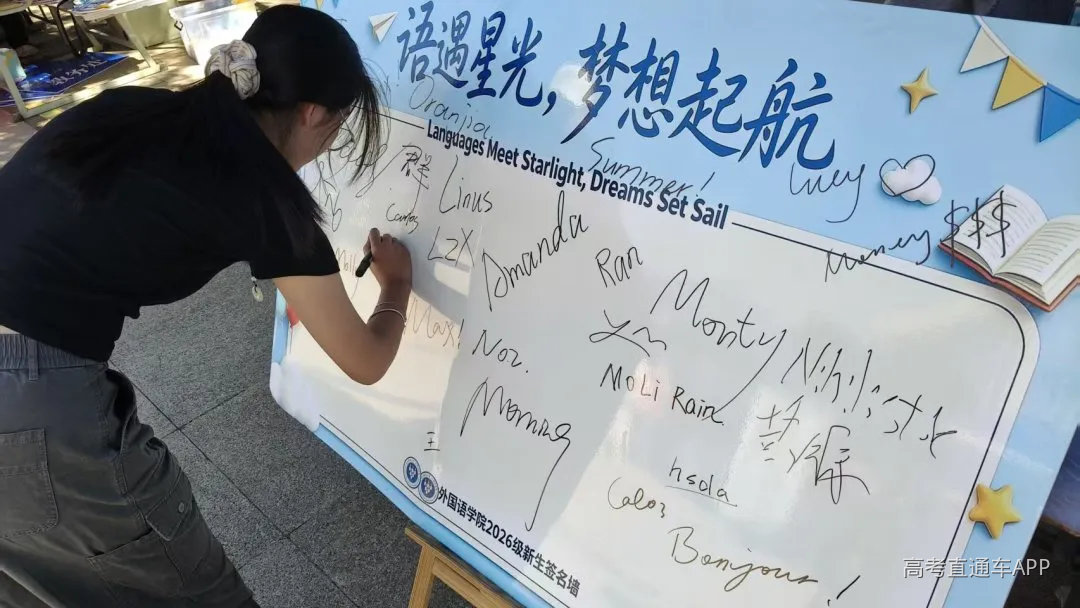 语遇星光，梦想起航
Languages Meet Starlight, Dreams Set Sail
Oranjia
Summer!
Lucy
Money $$$
群
Linus
Carlos
LZX
Amanda
Ran
Monty
Molly
Max!
Noz.
MoLi Rain
Morning
王
hsola
Bonjour !
外国语学院2026级新生签名墙
高考直通车APP